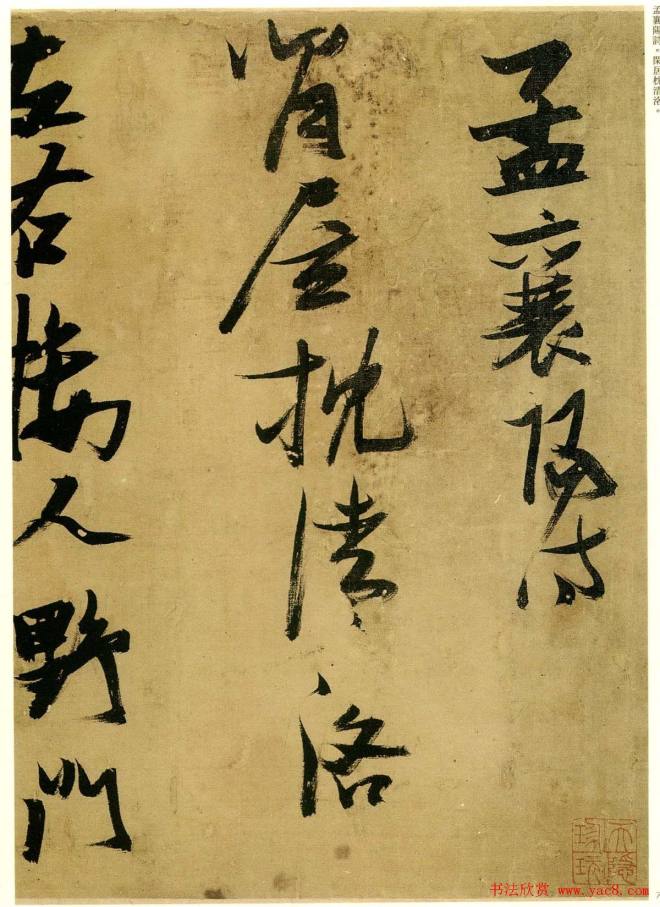 孟襄陽詩。閒居枕清洛。
孟襄陽詩
閒居枕清洛
左右接人野門
书法欣赏 www.yac8.com